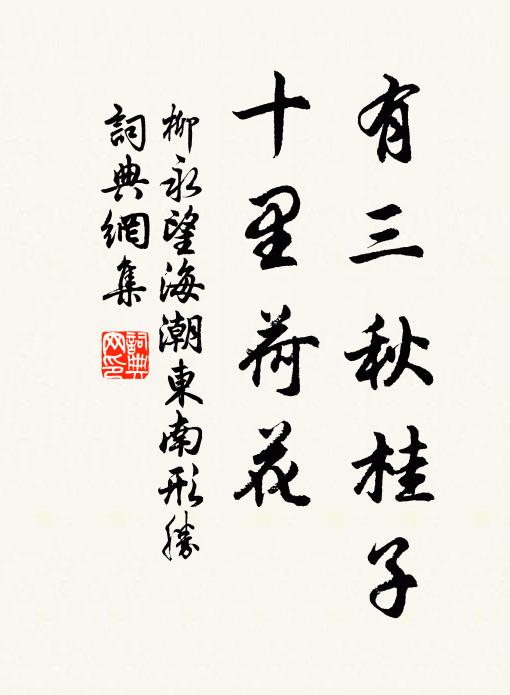 有三秋桂子
十里荷花
柳永望海潮東南形勝
詞典網集
詞典網印